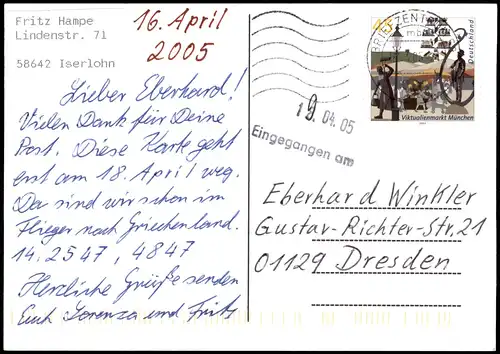 Fritz Hampe
Lindenstr. 71
58642 Iserlohn
16. April
2005
Lieber Eberhard!
Vielen Dank für Deine
Post. Diese Karte geht
erst am 18. April weg.
Da sind wir schon im
Flieger nach Griechenland.
14.2547, 4847
Herzliche Grüße senden
Euch Lorenza und Fritz
BRIEFZENTRUM
45
Deutschland
Viktualienmarkt München
19. 04. 05
Eingegangen am
Eberhard Winkler
Gustav-Richter-Str. 21
01129 Dresden